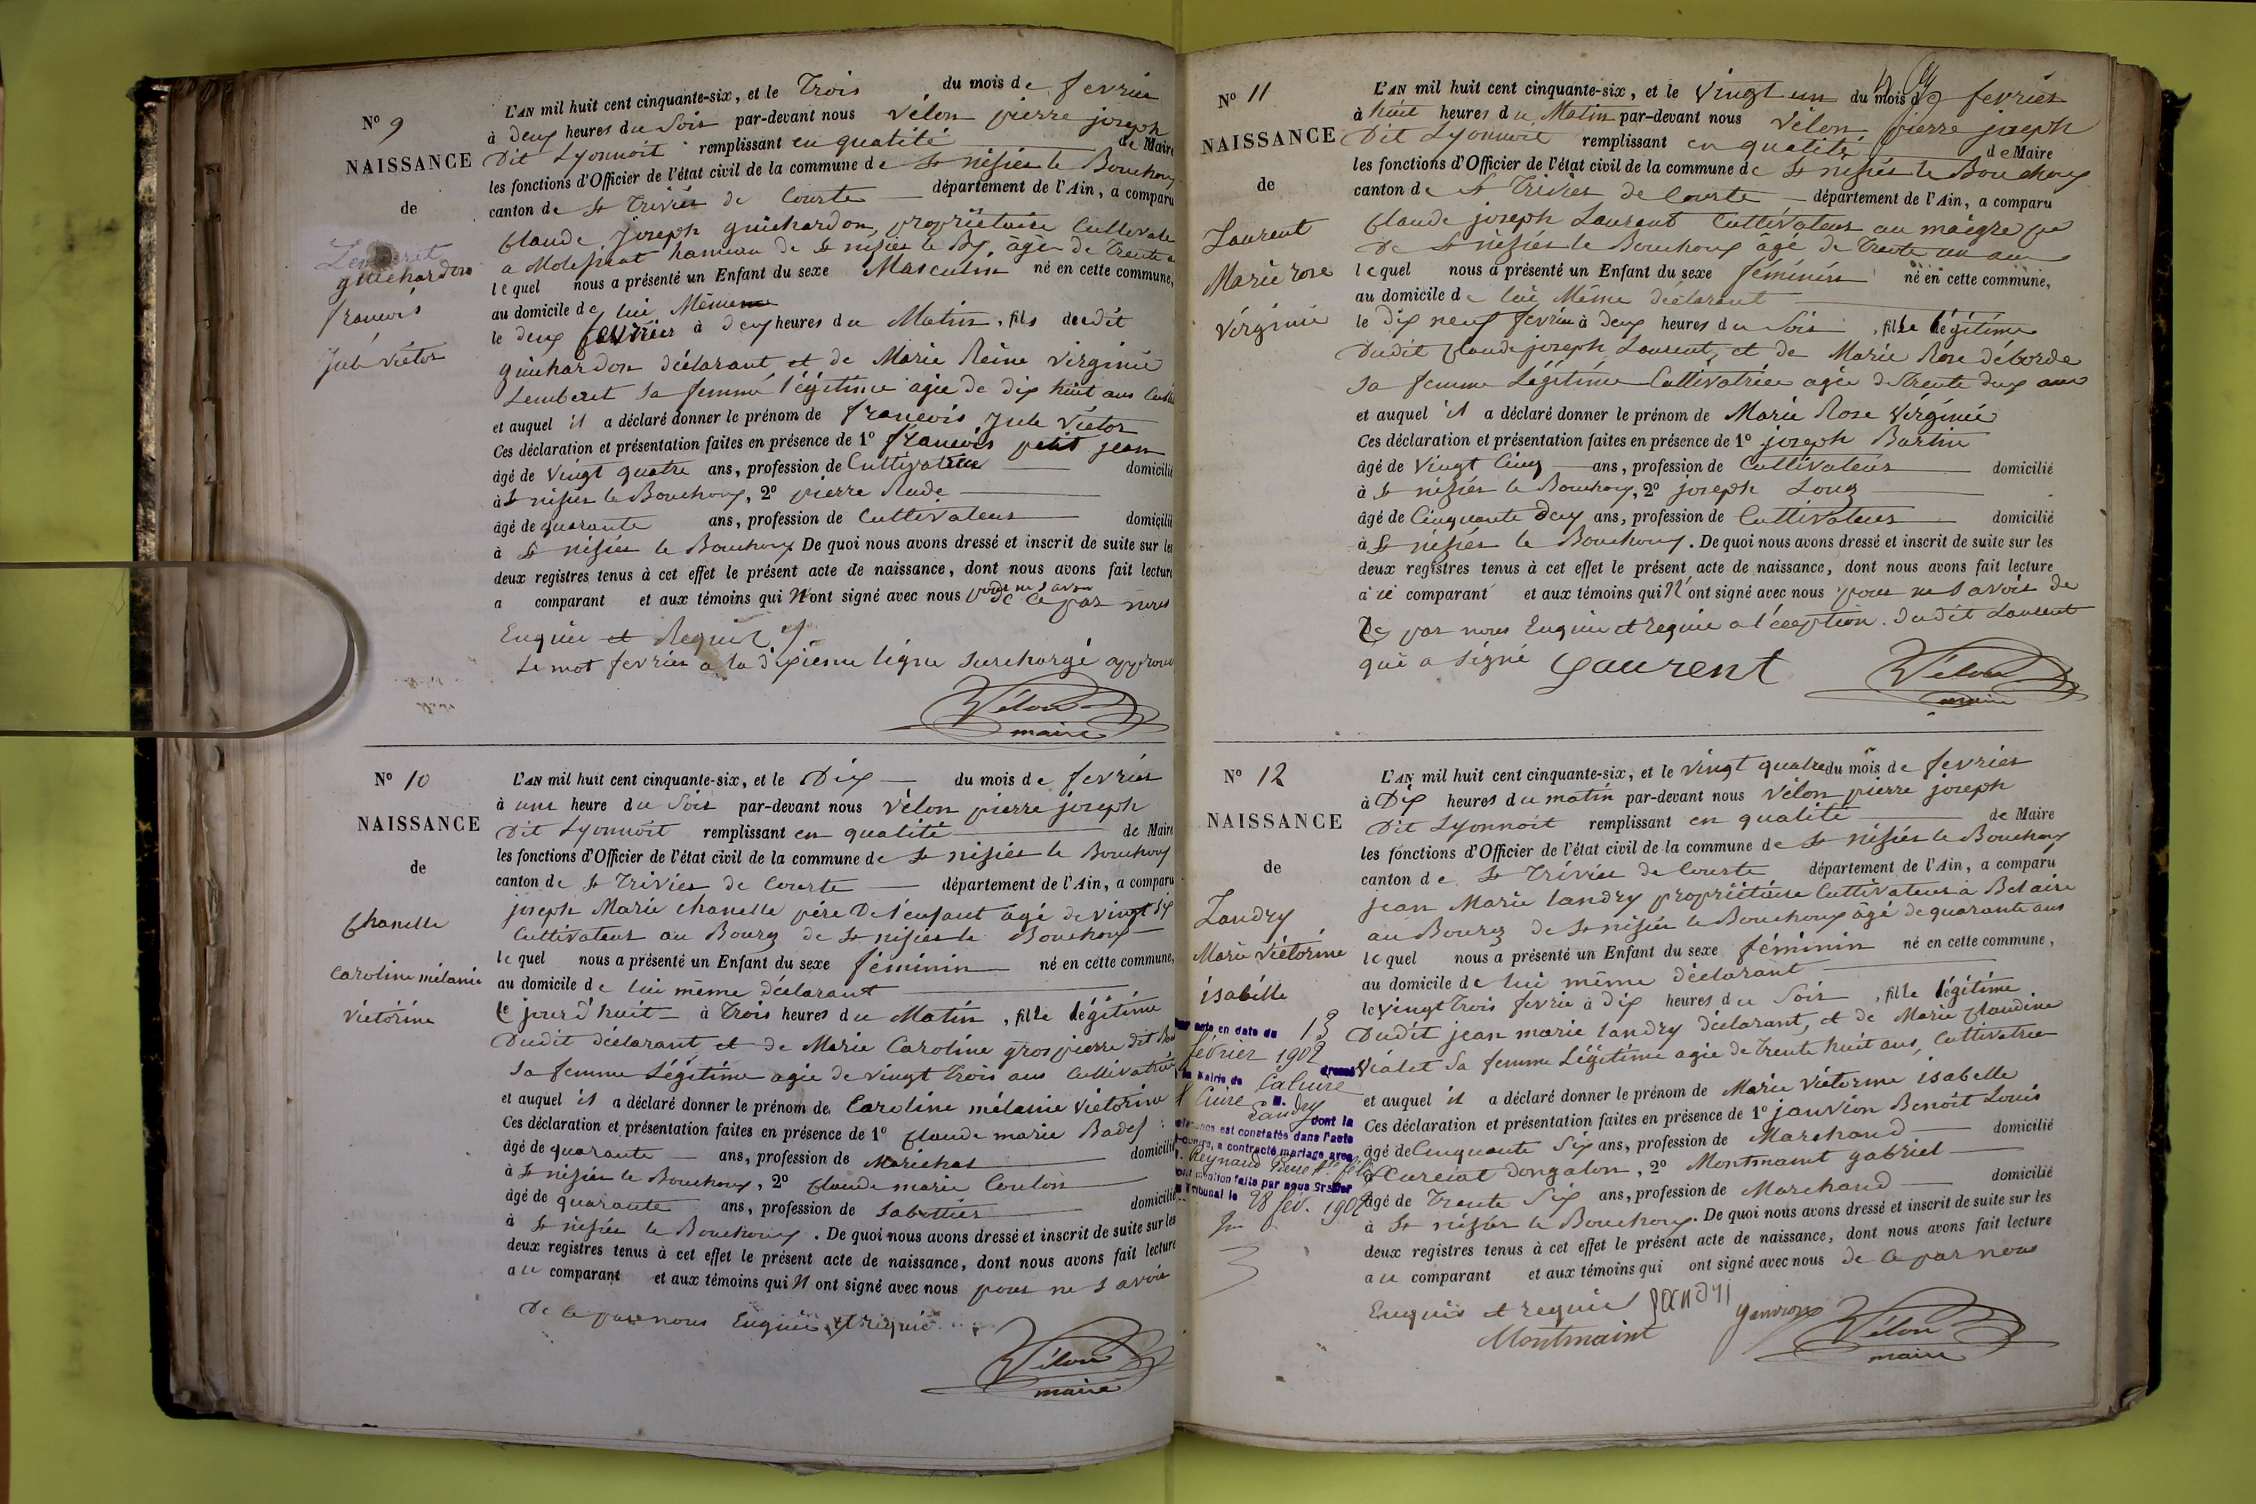 Nº 9
NAISSANCE
de
guichardon
francois
Jule victor
L'AN mil huit cent cinquante-six, et le Trois du mois de fevrier
à deux heures du Soir par-devant nous Vélon pierre joseph
Dit Lyonnoit remplissant en qualité de Maire
les fonctions d'Officier de l'état civil de la commune de St nisiés le Bouchoux
canton de St Triviés de Courte département de l'Ain, a comparu
Claude joseph guichardon, propriétaire Cultivate
a hameau de St nisiés le Bx âgé de Trente
lequel nous a présenté un Enfant du sexe Masculin né en cette commune,
au domicile de lui Même
le deux fevrier à deux heures du Matin, fils dudit
guichardon déclarant et de Marie Reine virginie
Lemberet Sa femme légitime agée de dix huit ans
et auquel il a déclaré donner le prénom de francois Jule Victor
Ces déclaration et présentation faites en présence de 1º francois petit jean
âgé de vingt quatre ans, profession de Cultivateur domicilié
à St nisiés le Bouchoux, 2º pierre Rude
âgé de quarante ans, profession de Cultivateur domicilié
à St nisiés le Bouchoux De quoi nous avons dressé et inscrit de suite sur les
deux registres tenus à cet effet le présent acte de naissance, dont nous avons fait lecture
a comparant et aux témoins qui N'ont signé avec nous pour ne Savoir
de ce par nous
Enquis et Requis
Le mot fevrier a la dixieme ligne Surchargé approuvé
Vélon
maire
Nº 10
NAISSANCE
de
Chanelle
Caroline mélanie
Victorine
L'AN mil huit cent cinquante-six, et le Dix du mois de fevrier
à une heure du Soir par-devant nous Vélon pierre joseph
Dit Lyonnoit remplissant en qualité de Maire
les fonctions d'Officier de l'état civil de la commune de St nisiés le Bouchoux
canton de St Triviés de Courte département de l'Ain, a comparu
joseph Marie chanelle pére De l'enfant âgé de vingt six
Cultivateur au Bourg de St nisiés le Bouchoux
lequel nous a présenté un Enfant du sexe féminin né en cette commune,
au domicile de lui même déclarant
Ce jour d'huit à Trois heures du Matin, fille légitime
Dudit déclarant et de Marie Caroline gros pierre dit
Sa femme Légitime agée de vingt Trois ans Cultivatrice
et auquel il a déclaré donner le prénom de Caroline mélanie Victorine
Ces déclaration et présentation faites en présence de 1º Claude marie Badef
âgé de quarante ans, profession de Maréchal domicilié
à St nisiés le Bouchoux, 2º Claude marie Coulon
âgé de quarante ans, profession de Sabottier domicilié
à St nisiés le Bouchoux. De quoi nous avons dressé et inscrit de suite sur les
deux registres tenus à cet effet le présent acte de naissance, dont nous avons fait lecture
au comparant et aux témoins qui N'ont signé avec nous pour ne Savoir
De ce par nous Enquis et requis
Vélon
maire
Nº 11
NAISSANCE
de
Laurent
Marie rose
Virginie
L'AN mil huit cent cinquante-six, et le Vingt un du mois de fevrier
à huit heures du Matin par-devant nous Vélon pierre joseph
Dit Lyonnoit remplissant en qualité de Maire
les fonctions d'Officier de l'état civil de la commune de St nisiés le Bouchoux
canton de St Triviés de Courte département de l'Ain, a comparu
Claude joseph Laurent Cultivateur au
De St nisiés le Bouchoux agé de Trente un ans
lequel nous a présenté un Enfant du sexe féminin né en cette commune,
au domicile de lui Même déclarant
le dix neuf fevrier à deux heures du Soir, fille légitime
Dudit Claude joseph Laurent, et de Marie Rose déborde
Sa femme Légitime Cultivatrice agée de trente deux ans
et auquel il a déclaré donner le prénom de Marie Rose Virginie
Ces déclaration et présentation faites en présence de 1º joseph Bartin
âgé de Vingt Cinq ans, profession de Cultivateur domicilié
à St nisiés le Bouchoux, 2º joseph Long
âgé de Cinquante Deux ans, profession de Cultivateur domicilié
à St nisiés le Bouchoux. De quoi nous avons dressé et inscrit de suite sur les
deux registres tenus à cet effet le présent acte de naissance, dont nous avons fait lecture
a comparant et aux témoins qui N'ont signé avec nous pour ne Savoir de
Ce par nous Enquis et requis a l'éception dudit Laurent
qui a signé Laurent
Vélon
maire
Nº 12
NAISSANCE
de
Landry
Marie Victorine
isabelle
acte en date du 13
février 1902 dressé
Mairie de Caluire
& Cuire M. Landry
dont la
est constatée dans l'acte
a contracté mariage avec
Reynaud
mention faite par nous Greffier
Tribunal le 28 fév. 1902
L'AN mil huit cent cinquante-six, et le vingt quatre du mois de fevrier
à Dix heures du matin par-devant nous Vélon pierre joseph
Dit Lyonnoit remplissant en qualité de Maire
les fonctions d'Officier de l'état civil de la commune de St nisiés le Bouchoux
canton de St Triviés de Courte département de l'Ain, a comparu
jean Marie landry propriétaire Cultivateur à Bel aire
au Bourg de St nisiés le Bouchoux âgé de quarante ans
lequel nous a présenté un Enfant du sexe féminin né en cette commune,
au domicile de lui même déclarant
le vingt Trois fevrier à dix heures du Soir, fille légitime
Dudit jean marie landry déclarant, et de Marie Claudine
Vialet Sa femme Légitime agée de Trente huit ans, Cultivatrice
et auquel il a déclaré donner le prénom de Marie Victorine isabelle
Ces déclaration et présentation faites en présence de 1º janvion Benoit Louis
âgé de Cinquante Six ans, profession de Marchand domicilié
à Curciat dongalon, 2º Montmaint gabriel
âgé de Trente Six ans, profession de Marchand domicilié
à St nisiés le Bouchoux. De quoi nous avons dressé et inscrit de suite sur les
deux registres tenus à cet effet le présent acte de naissance, dont nous avons fait lecture
au comparant et aux témoins qui ont signé avec nous de ce par nous
Enquis et requis Landri janvion
Montmaint
Vélon
maire